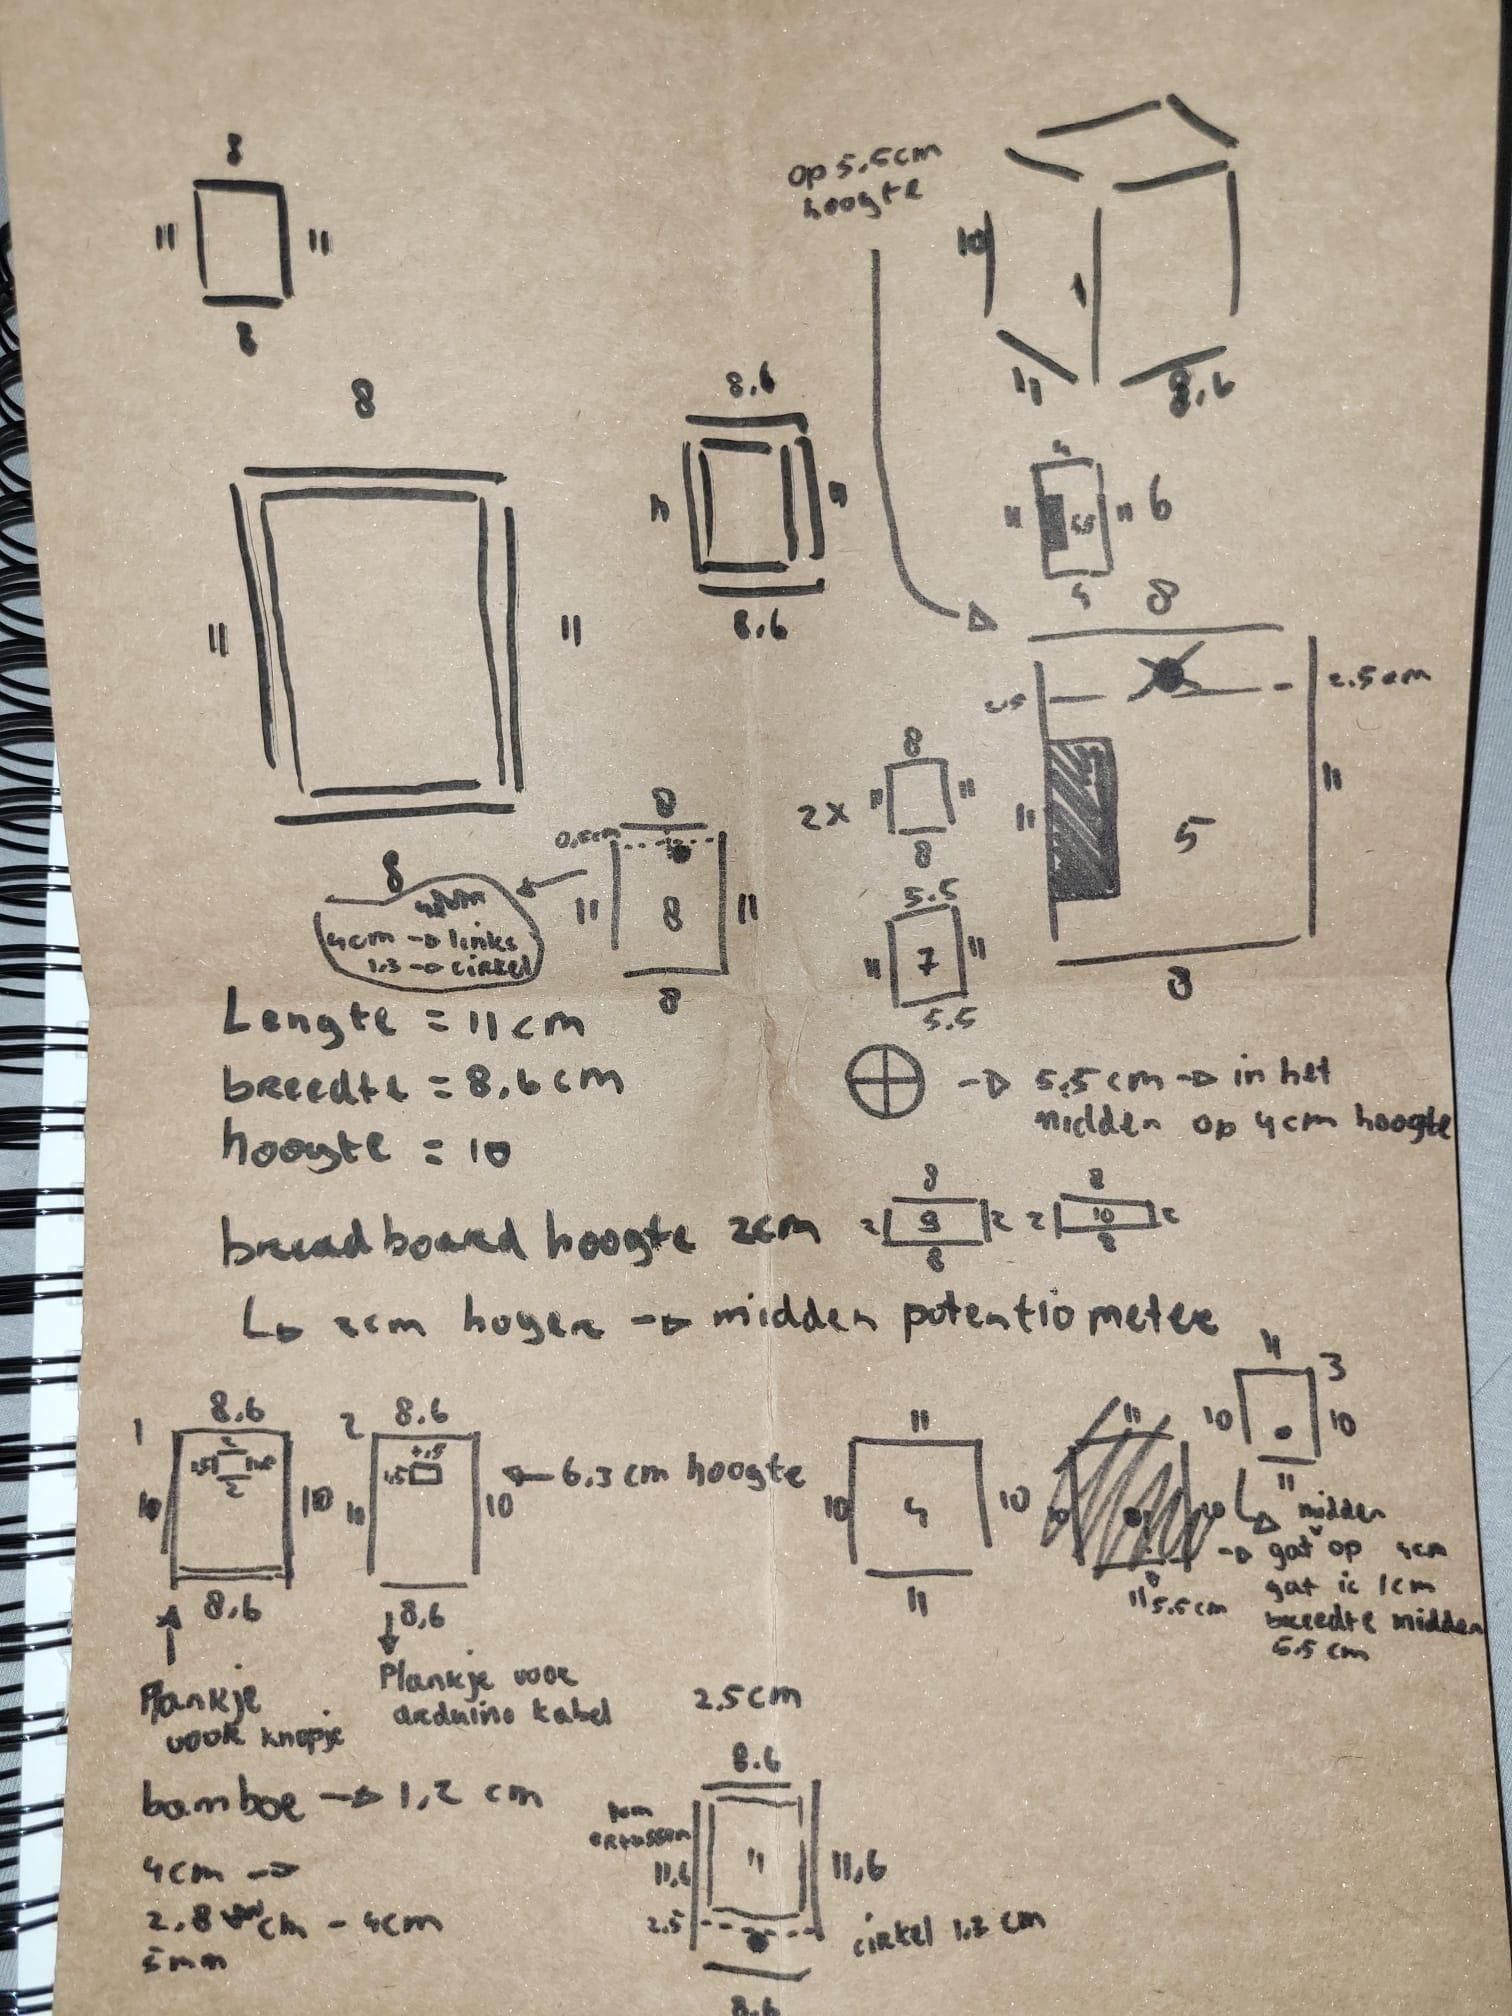 8
11 11
8
op 5.5cm
hoogte
10
11
8.6
8
8.6
11 11
8.6
11 11 6
8
8
2.5cm
11 11
5
8
8
2x 11 11
8
5.5
11 7 11
5.5
8
11 8 11
8
8
4cm → links
1.3 → cirkel
Lengte = 11cm
breedte = 8,6cm
hoogte = 10
→ 5.5cm → in het
midden op 4cm hoogte
breadboard hoogte 2cm
8
2 9 2
8
8
2 10 2
8
↳ 2cm hoger → midden potentiometer
1 8.6
2
2
10 10
8.6
Plankje
voor knopje
2 8.6
11 10
8,6
← 6.3cm hoogte
Plankje voor
arduino kabel
11
10 4 10
11
11
11 5.5cm
11 3
10 10
11
midden
→ gat op 4cm
gat is 1cm
breedte midden
5.5cm
2.5cm
bamboe → 1,2 cm
4cm →
2.8 cm - 4cm
5mm
8.6
ertussen
11,6 11 11,6
2.5
cirkel 1.3 cm
8.6